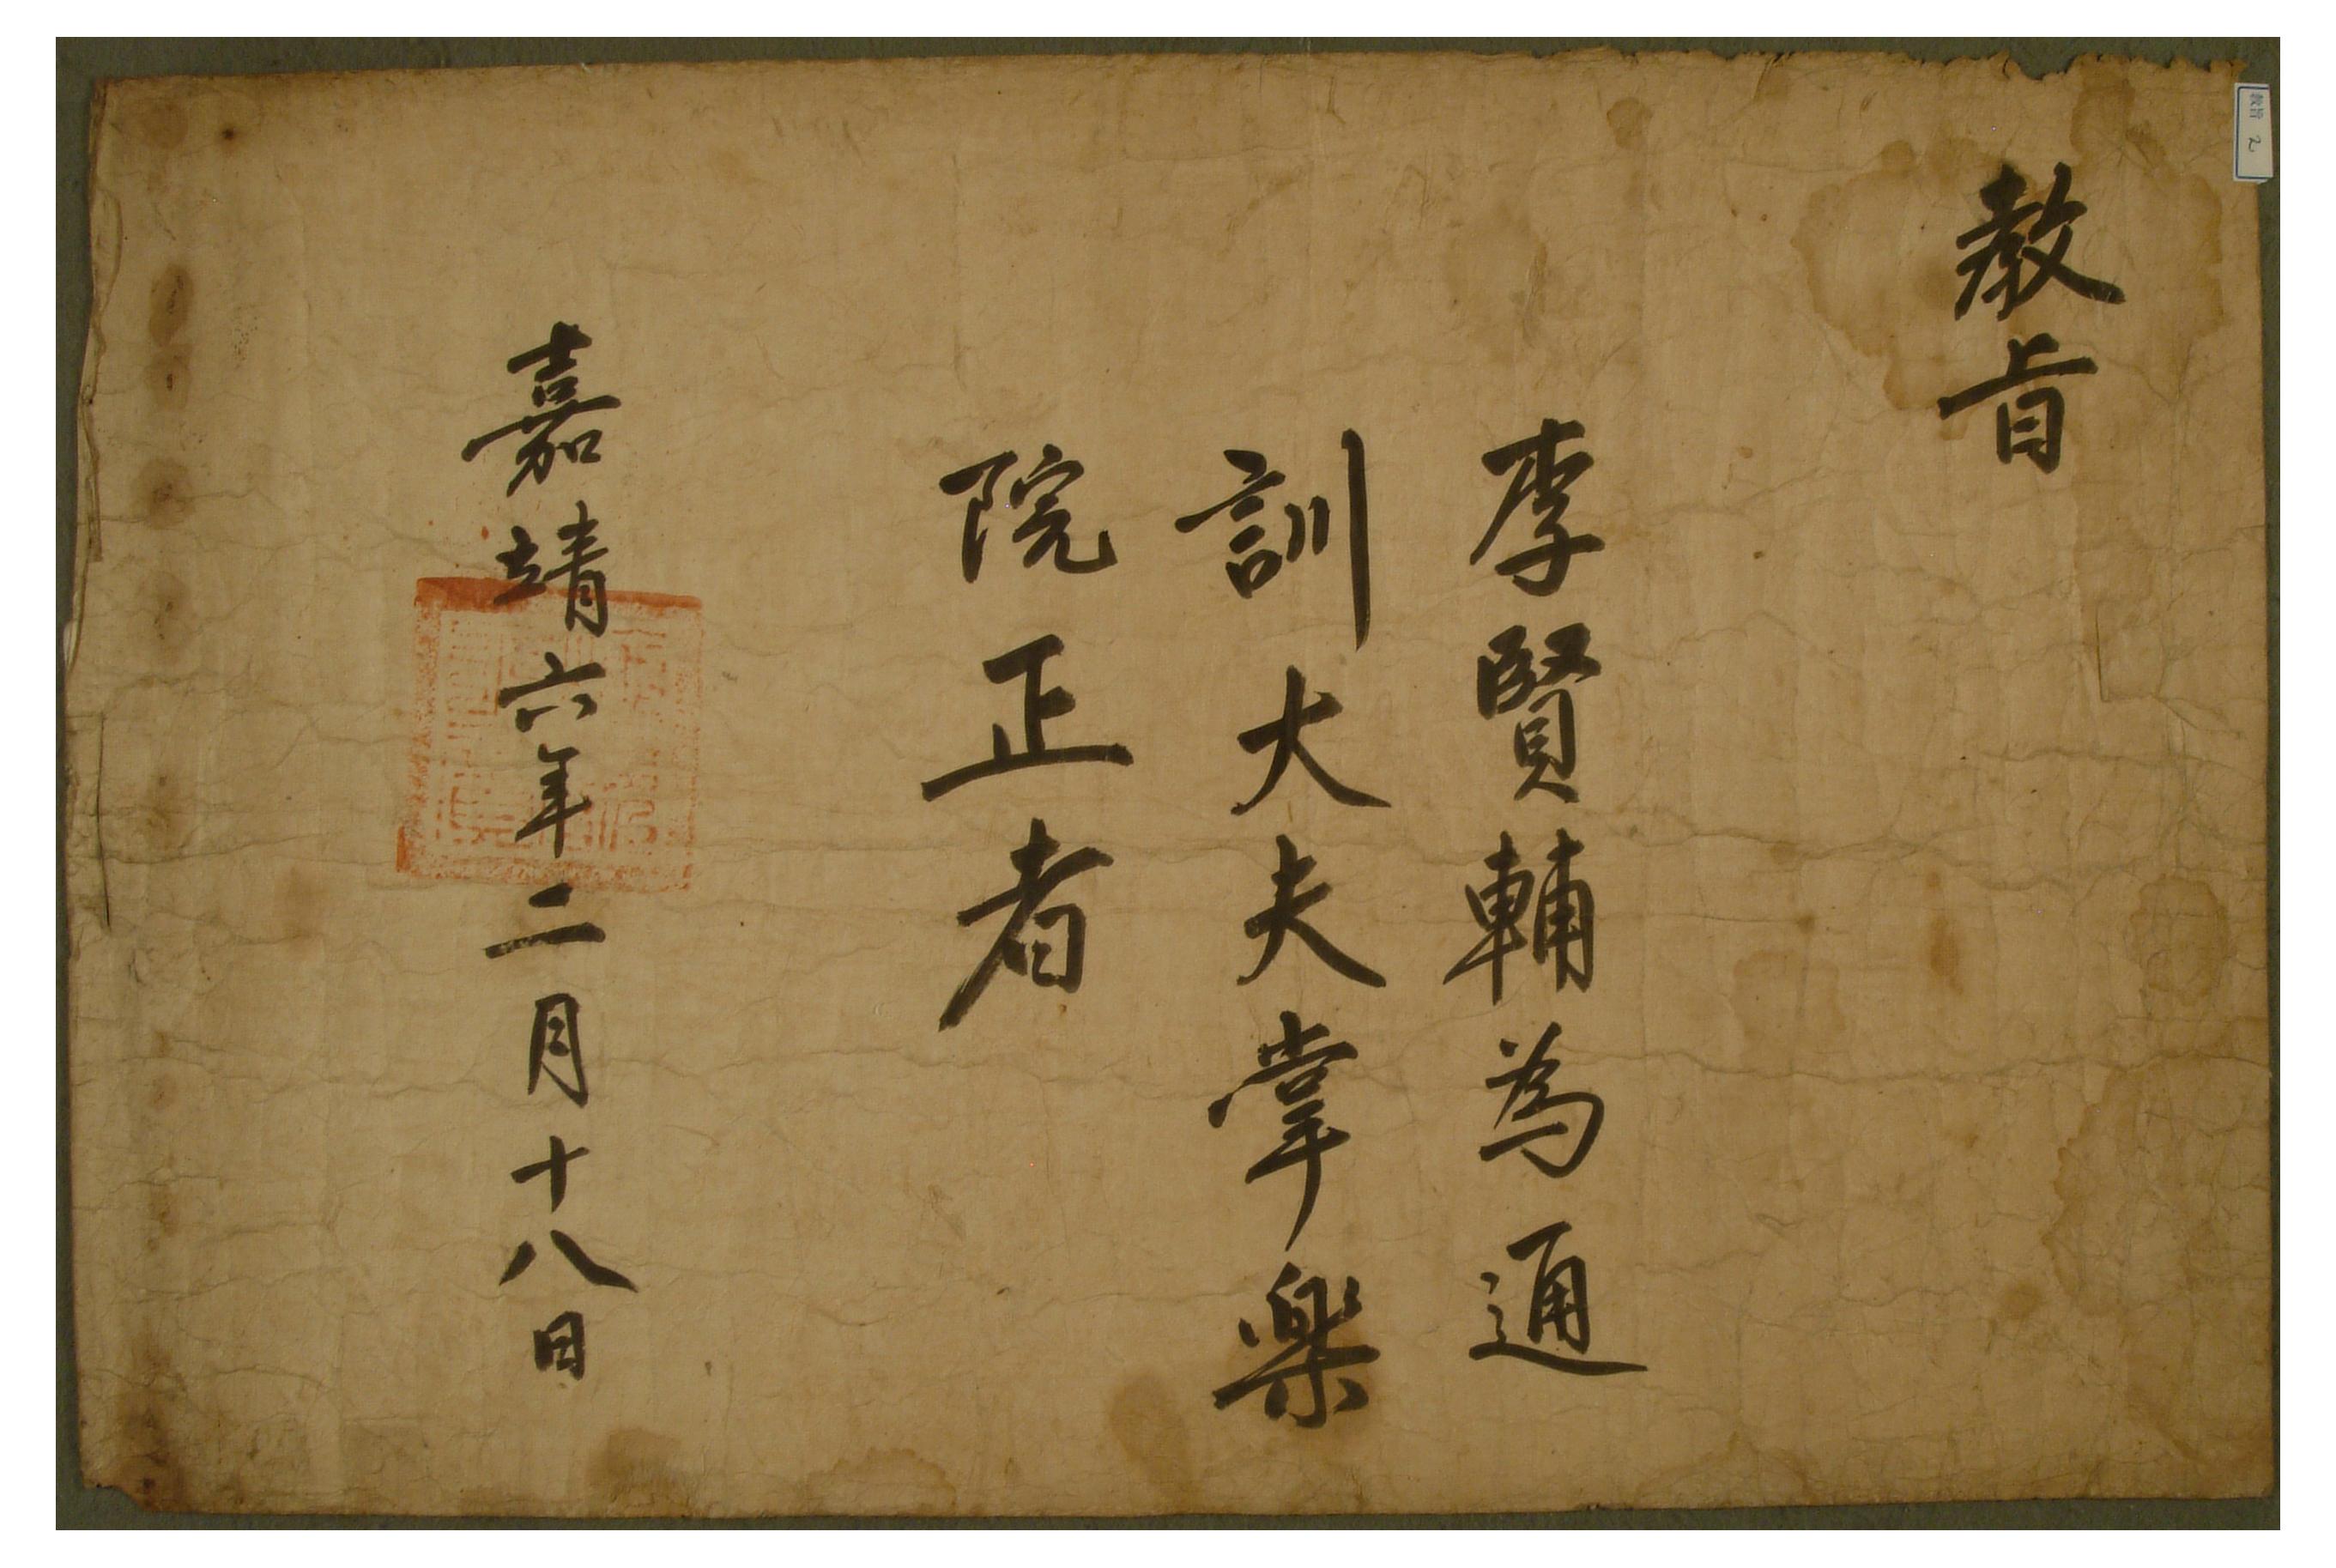 教旨
李賢輔為通
訓大夫掌樂
院正者
嘉靖六年二月十八日
教旨 2